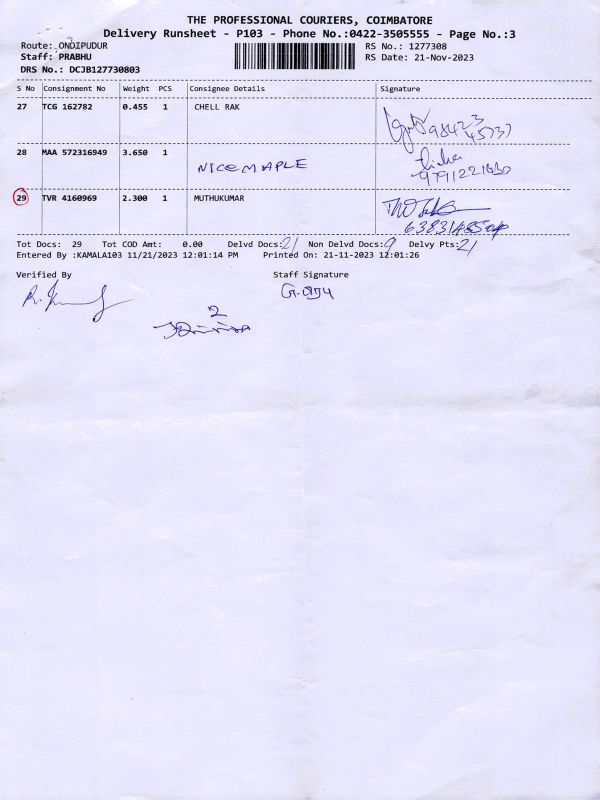 THE PROFESSIONAL COURIERS, COIMBATORE
Delivery Runsheet - P103 - Phone No.:0422-3505555 - Page No.:3
Route: ONDIPUDUR RS No.: 1277308
Staff: PRABHU RS Date: 21-Nov-2023
DRS No.: DCJB127730803
S No Consignment No Weight PCS Consignee Details Signature
27 TCG 162782 0.455 1 CHELL RAK
98423
45737
28 MAA 572316949 3.650 1
NICEMAPLE
9791221630
29 TVR 4160969 2.300 1 MUTHUKUMAR
Tot Docs: 29 Tot COD Amt: 0.00 Delvd Docs: 21 Non Delvd Docs: 9 Delvy Pts: 21
Entered By :KAMALA103 11/21/2023 12:01:14 PM Printed On: 21-11-2023 12:01:26
Verified By Staff Signature
2